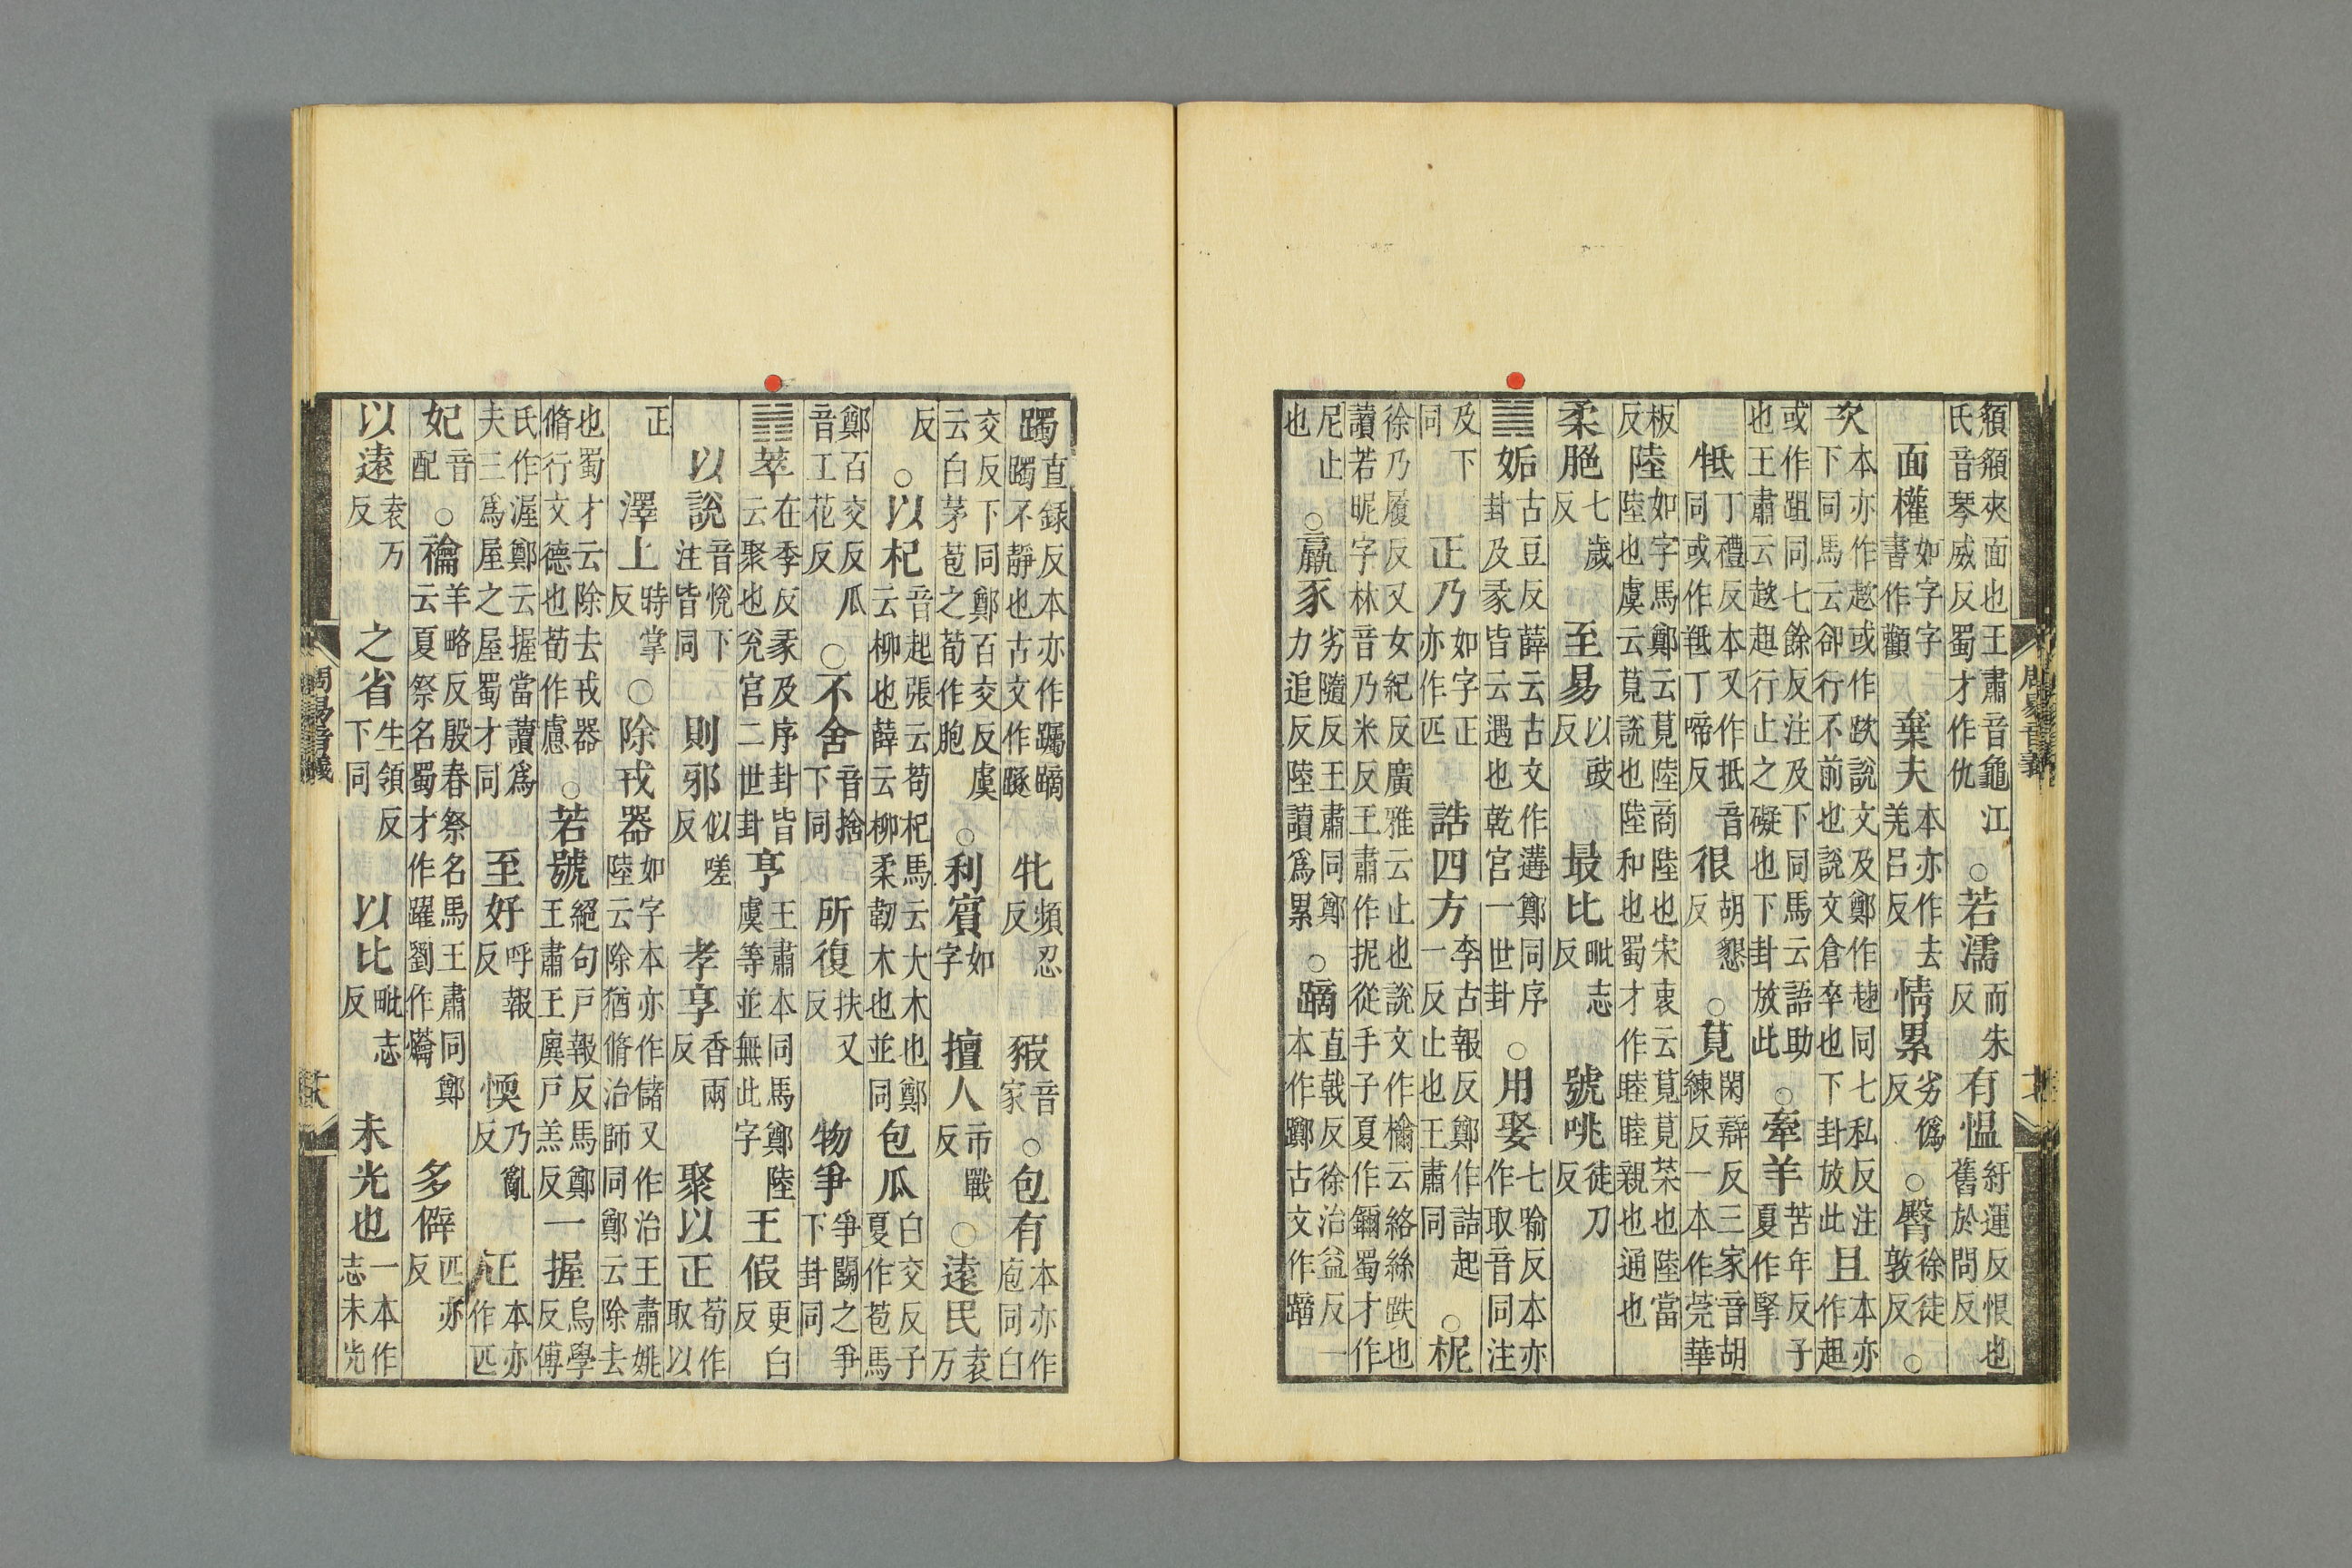 頯頯夾面也王肅音龜江氏音琴威反蜀才作仇○若濡而朱反有慍紆運反恨也舊於問反
面權如字字書作顴棄夫本亦作去羌呂反情累劣僞反○臀徐徒敦反○
次本亦作趑或作跌說文及鄭作趀同七私反注下同馬云卻行不前也說文倉卒也下卦放此且本亦作趄
或作跙同七餘反注及下同馬云語助也王肅云趑趄行止之礙也下卦放此○牽羊苦年反子夏作掔
牴丁禮反本又作抵音同或作羝丁啼反很胡懇反○莧閑辯反三家音胡練反一本作莞華
板反陸如字馬鄭云莧陸商陸也宋衷云莧莧菜也陸當陸也虞云莧說也陸和也蜀才作睦睦親也通也
柔脆七歲反至易以豉反最比毗志反號咷徒刀反
䷫姤古豆反薛云古文作遘鄭同序卦及彖皆云遇也乾宮一世卦○用娶七喻反本亦作取音同注
及下同正乃如字正亦作匹誥四方李古報反鄭作詰起一反止也王肅同○柅
徐乃履反又女紀反廣雅云止也說文作檷云絡絲趺也讀若昵字林音乃米反王肅作抳從手子夏作鑈蜀才作
尼止也○羸豕劣隨反王肅同鄭力追反陸讀爲累○蹢直戟反徐治益反一本作躑古文作蹢
周易音義
躅直錄反本亦作躅蹢躅不靜也古文作𨆫牝頻忍反豭音家○包有本亦作庖同白
交反下同鄭百交反虞云白茅苞之荀作胞○利賓如字擅人市戰反○遠民袁万
反○以杞音起張云苟杞馬云大木也鄭云柳也薛云柳柔韌木也並同包瓜白交反子夏作苞馬
鄭百交反瓜音工花反○不舍音捨下同所復扶又反物爭爭鬭之爭下卦同
䷬萃在季反彖及序卦皆云聚也兌宮二世卦亨王肅本同馬鄭陸虞等並無此字王假更白反
以說音悅下注皆同則邪似嗟反孝享香兩反聚以正荀作取以
正澤上時掌反○除戎器如字本亦作儲又作治王肅姚陸云除猶脩治師同鄭云除去
也蜀才云除去戎器脩行文德也荀作慮○若號絕句戶報反馬鄭王肅王廙戶羔反一握烏學反傅
氏作渥鄭云握當讀爲夫三爲屋之屋蜀才同至好呼報反愞乃亂反正本亦作匹
妃音配○禴羊略反殷春祭名馬王肅同鄭云夏祭名蜀才作躍劉作爚多僻匹亦反
以遠袁万反之省生領反下同以比毗志反未光也一本作志未光
周易音義